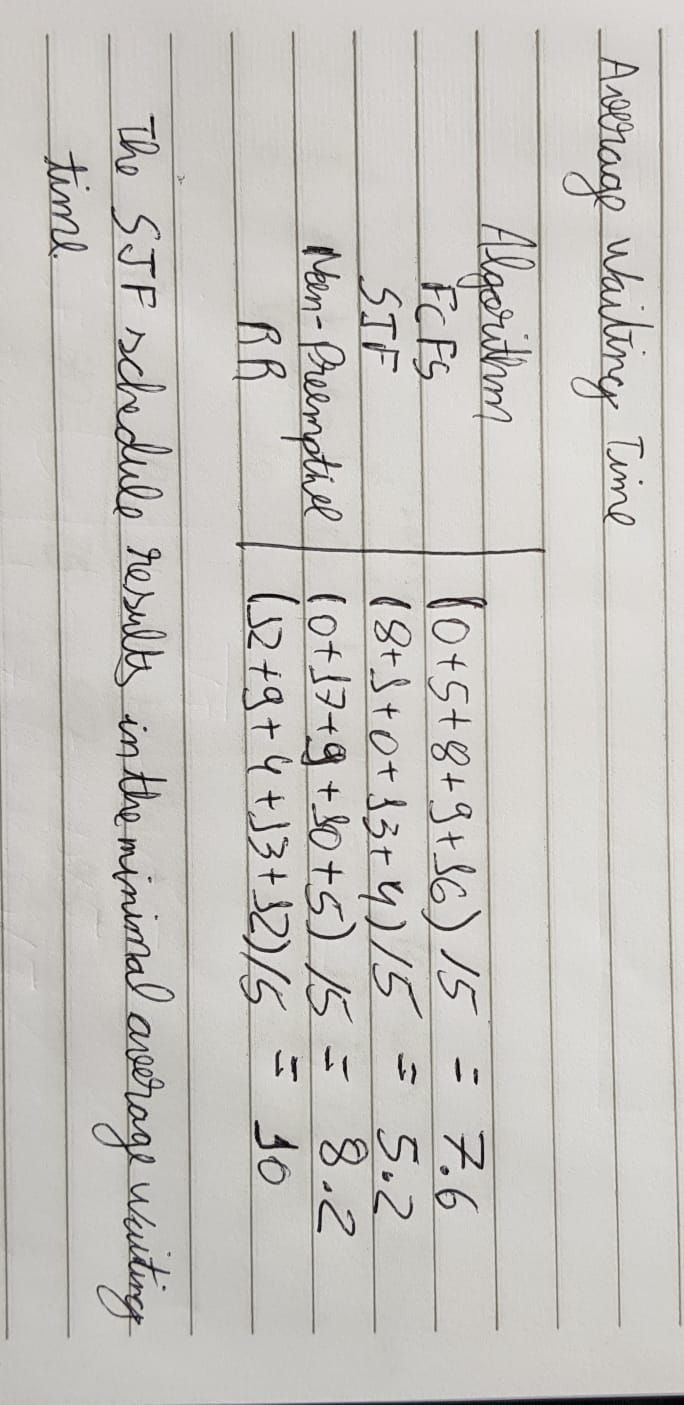 Average Waiting Time
Algorithm
FCFS (0+5+8+9+16) /5 = 7.6
SJF (8+1+0+13+4) /5 = 5.2
Non-Preemptive (0+17+9+10+5) /5 = 8.2
RR (12+9+4+13+12) /5 = 10
The SJF schedule results in the minimal average waiting
time.